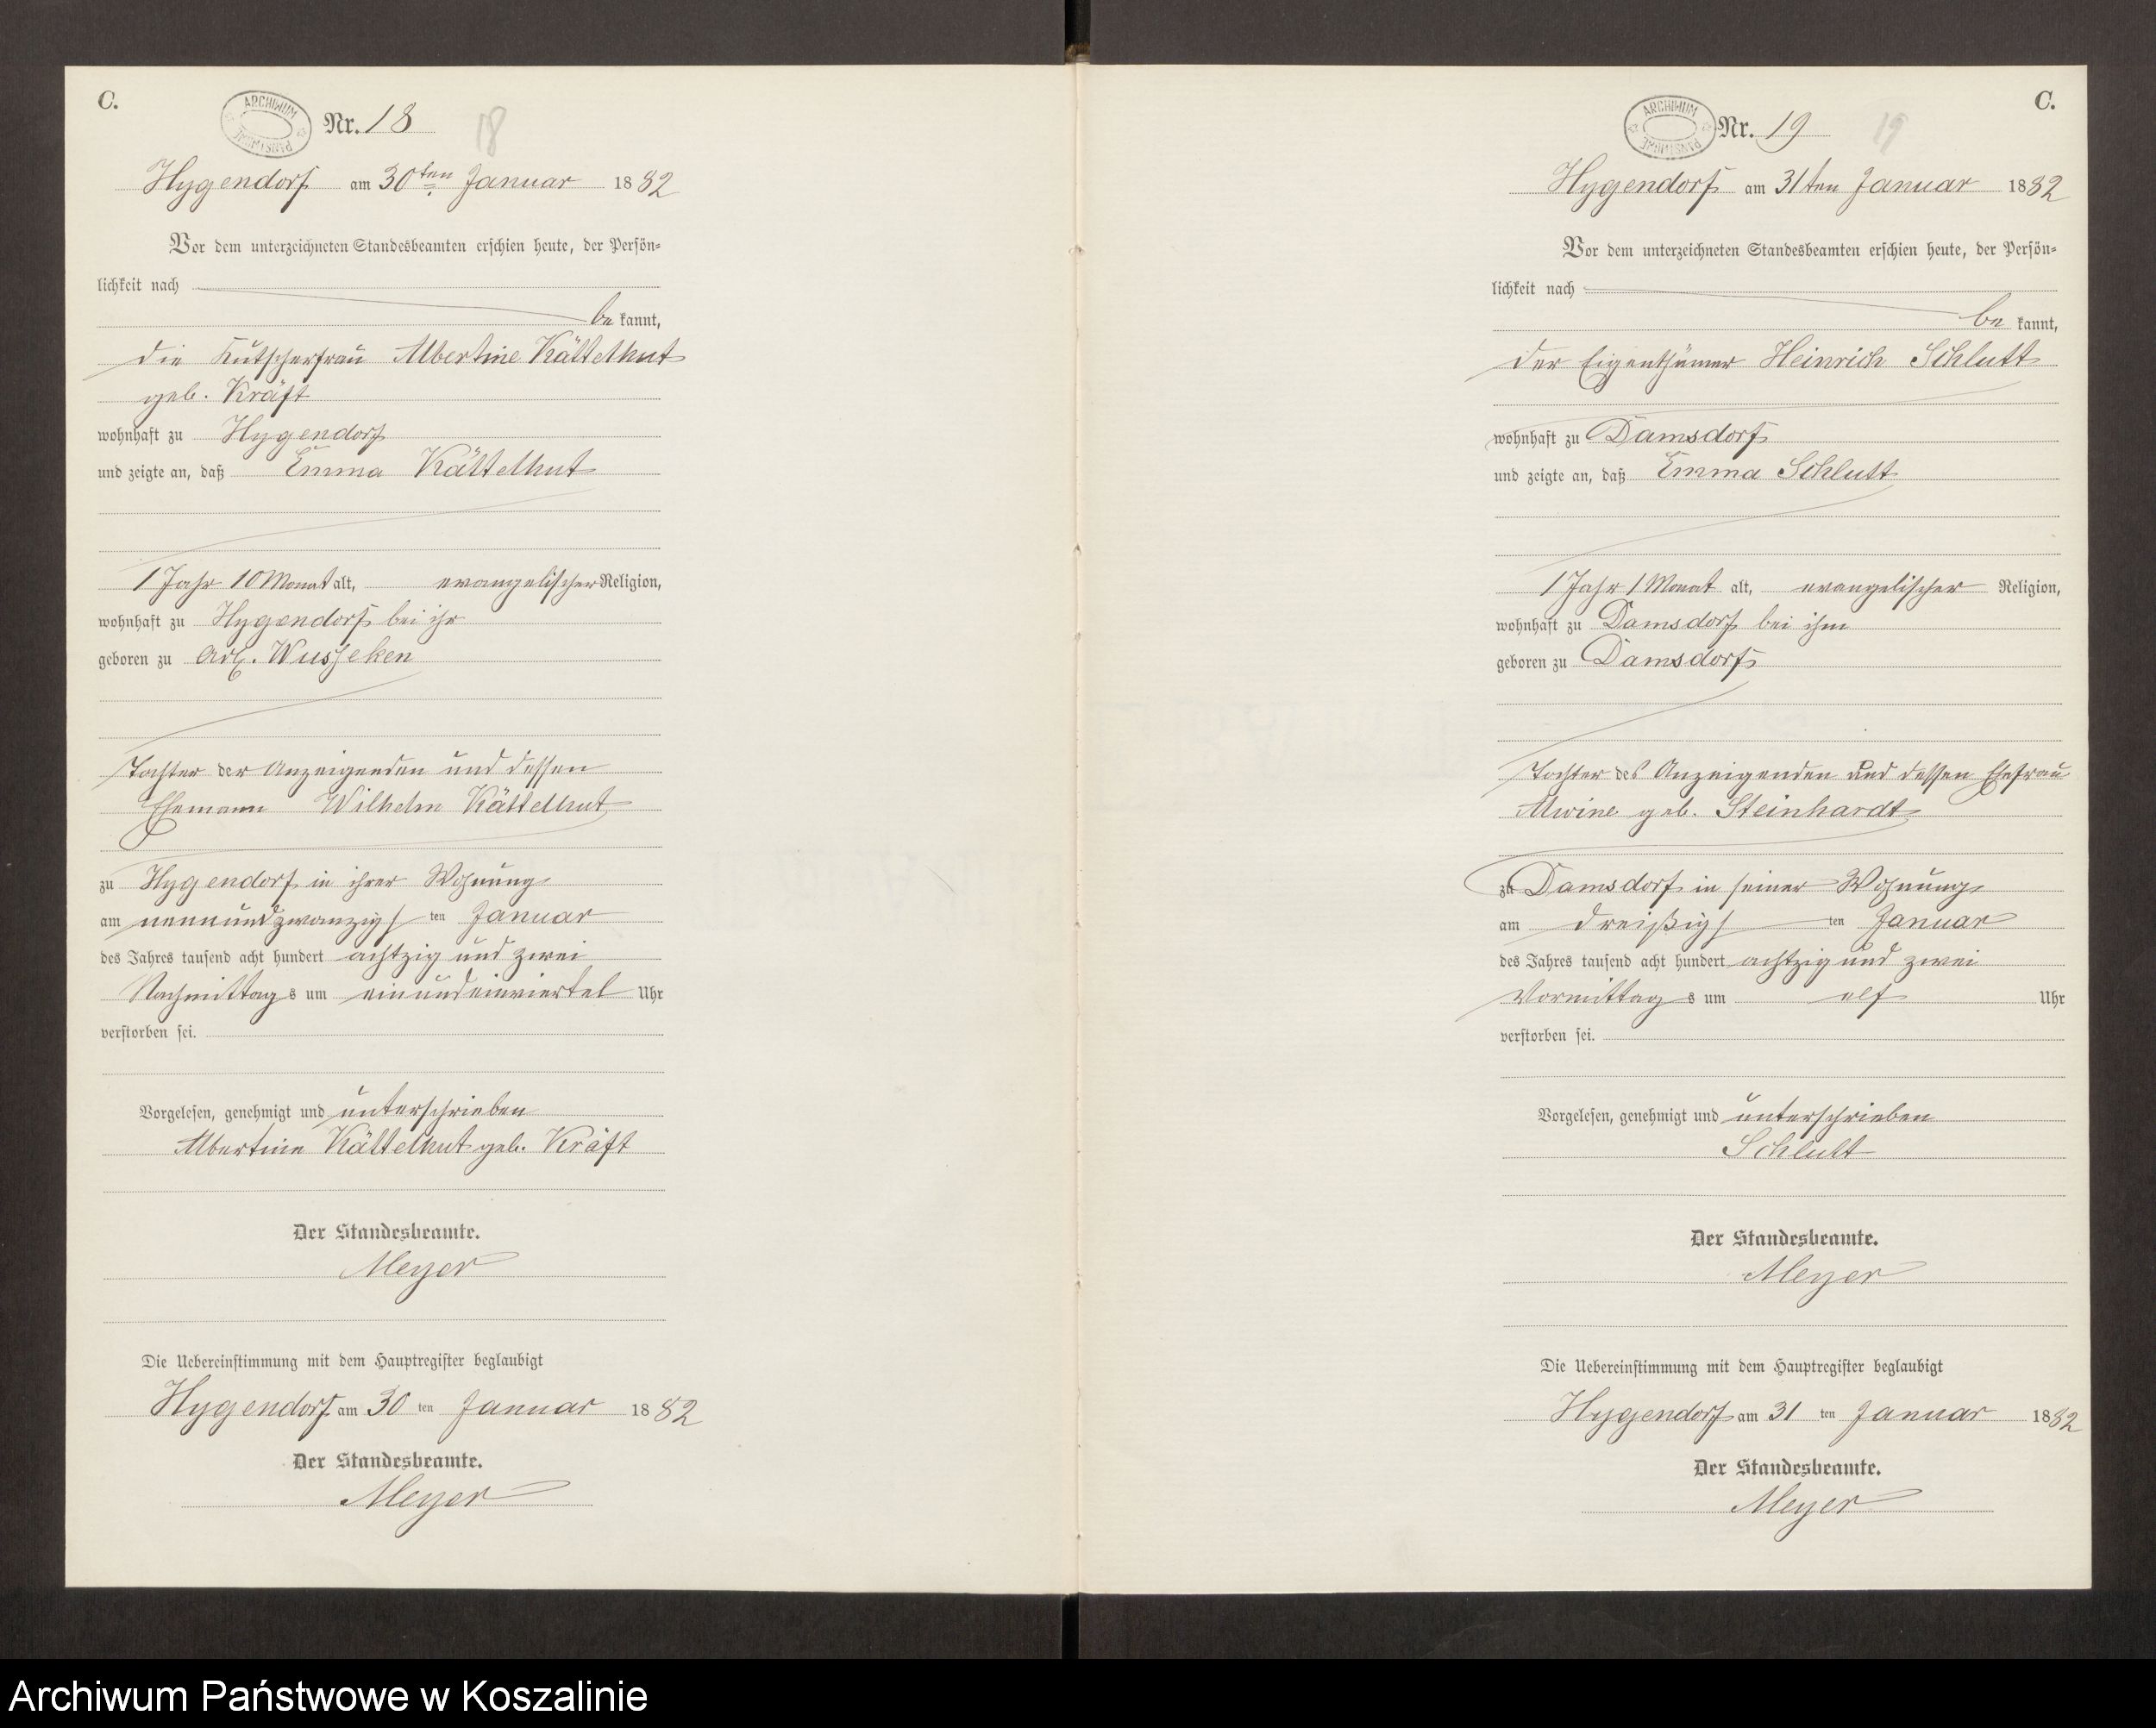 C.
ARCHIWUM PAŃSTWOWE
Nr. 18
18
Hygendorf am 30ten Januar 1882
Vor dem unterzeichneten Standesbeamten erschien heute, der Persön-
lichkeit nach
be kannt,
die Kutscherfrau Albertine Kättelhut
geb. Kräft
wohnhaft zu Hygendorf
und zeigte an, daß Emma Kättelhut
1 Jahr 10 Monat alt, evangelischer Religion,
wohnhaft zu Hygendorf bei ihr
geboren zu Adl. Wusseken
Tochter der Anzeigenden und dessen
Ehemann Wilhelm Kättelhut
zu Hygendorf in ihrer Wohnung
am neunundzwanzigsten Januar
des Jahres tausend acht hundert achtzig und zwei
Nachmittags um einundeinviertel Uhr
verstorben sei.
Vorgelesen, genehmigt und unterschrieben
Albertine Kättelhut geb. Kräft
Der Standesbeamte.
Meyer
Die Uebereinstimmung mit dem Hauptregister beglaubigt
Hygendorf am 30 ten Januar 1882
Der Standesbeamte.
Meyer
C.
ARCHIWUM PAŃSTWOWE
Nr. 19
19
Hygendorf am 31ten Januar 1882
Vor dem unterzeichneten Standesbeamten erschien heute, der Persön-
lichkeit nach
be kannt,
der Eigenthümer Heinrich Schlutt
wohnhaft zu Damsdorf
und zeigte an, daß Emma Schlutt
1 Jahr 1 Monat alt, evangelischer Religion,
wohnhaft zu Damsdorf bei ihm
geboren zu Damsdorf
Tochter des Anzeigenden und dessen Ehefrau
Alwine geb. Steinhardt
zu Damsdorf in seiner Wohnung
am dreißigsten Januar
des Jahres tausend acht hundert achtzig und zwei
Vormittags um elf Uhr
verstorben sei.
Vorgelesen, genehmigt und unterschrieben
Schlutt
Der Standesbeamte.
Meyer
Die Uebereinstimmung mit dem Hauptregister beglaubigt
Hygendorf am 31 ten Januar 1882
Der Standesbeamte.
Meyer
Archiwum Państwowe w Koszalinie